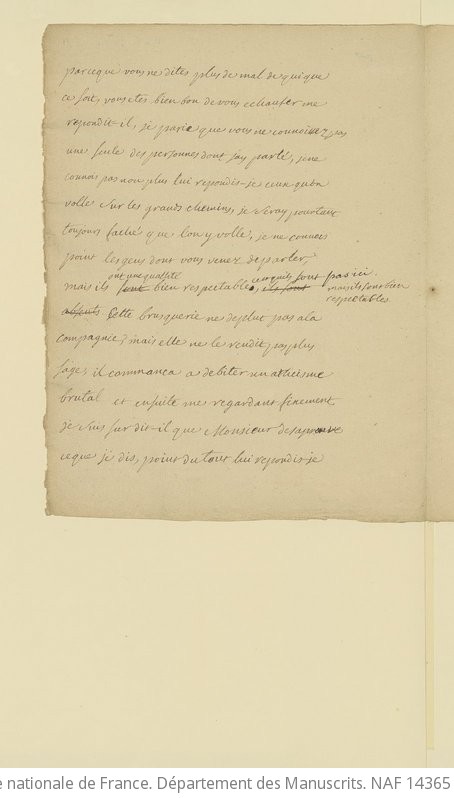 parceque vous ne dites plus de mal de qui que
ce soit, vous etes bien bon de vous echaufer me
repondit-il, je parie que vous ne connoissez pas
une seule des personnes dont jay parlé, je ne
connois pas non plus lui repondis-je ceux qu'on
volle sur les grands chemins, je seray pourtant
toujours faché que lon y volle, je ne connois
point les gens dont vous venez de parler
ont une qualité
mais ils sont bien respectable, ils sont pas ici
mais ils sont bien
respectables
absents Cette brusquerie ne deplut pas a la
compagnie, mais elle ne le rendit pas plus
sage, il commanca a debiter un atheisme
brutal et ensuite me regardant finement
je suis sur dit-il que Monsieur desaprouve
ceque je dis, point du tout lui repondis-je
e nationale de France. Département des Manuscrits. NAF 14365